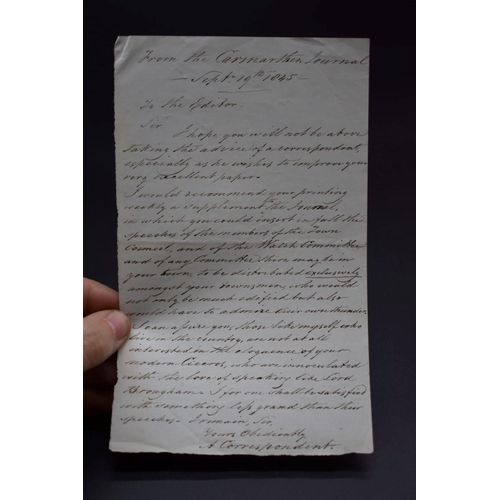 From the Carmarthen Journal
— Sept. 19th 1845 —
To the Editor.
Sir
I hope you will not be above
taking the advice of a correspondent,
especially as he wishes to improve your
very excellent paper.
I would recommend your printing
weekly a Supplement to the Journal,
in which you could insert in full the
speeches of the members of the Town
Council, and of the Watch Committee
and of any Committee there may be in
your town, to be distributed exclusively
amongst your townsmen, who would
not only be much edified but also
would have to admire their own thunder.
I can assure you, those like myself who
live in the country, are not at all
interested in the eloquence of your
modern Ciceros, who are innoculated
with the love of speaking like Lord
Brougham. I for one shall be satisfied
with something less grand than their
speeches. I remain, Sir,
Yours Obediently
A Correspondent.